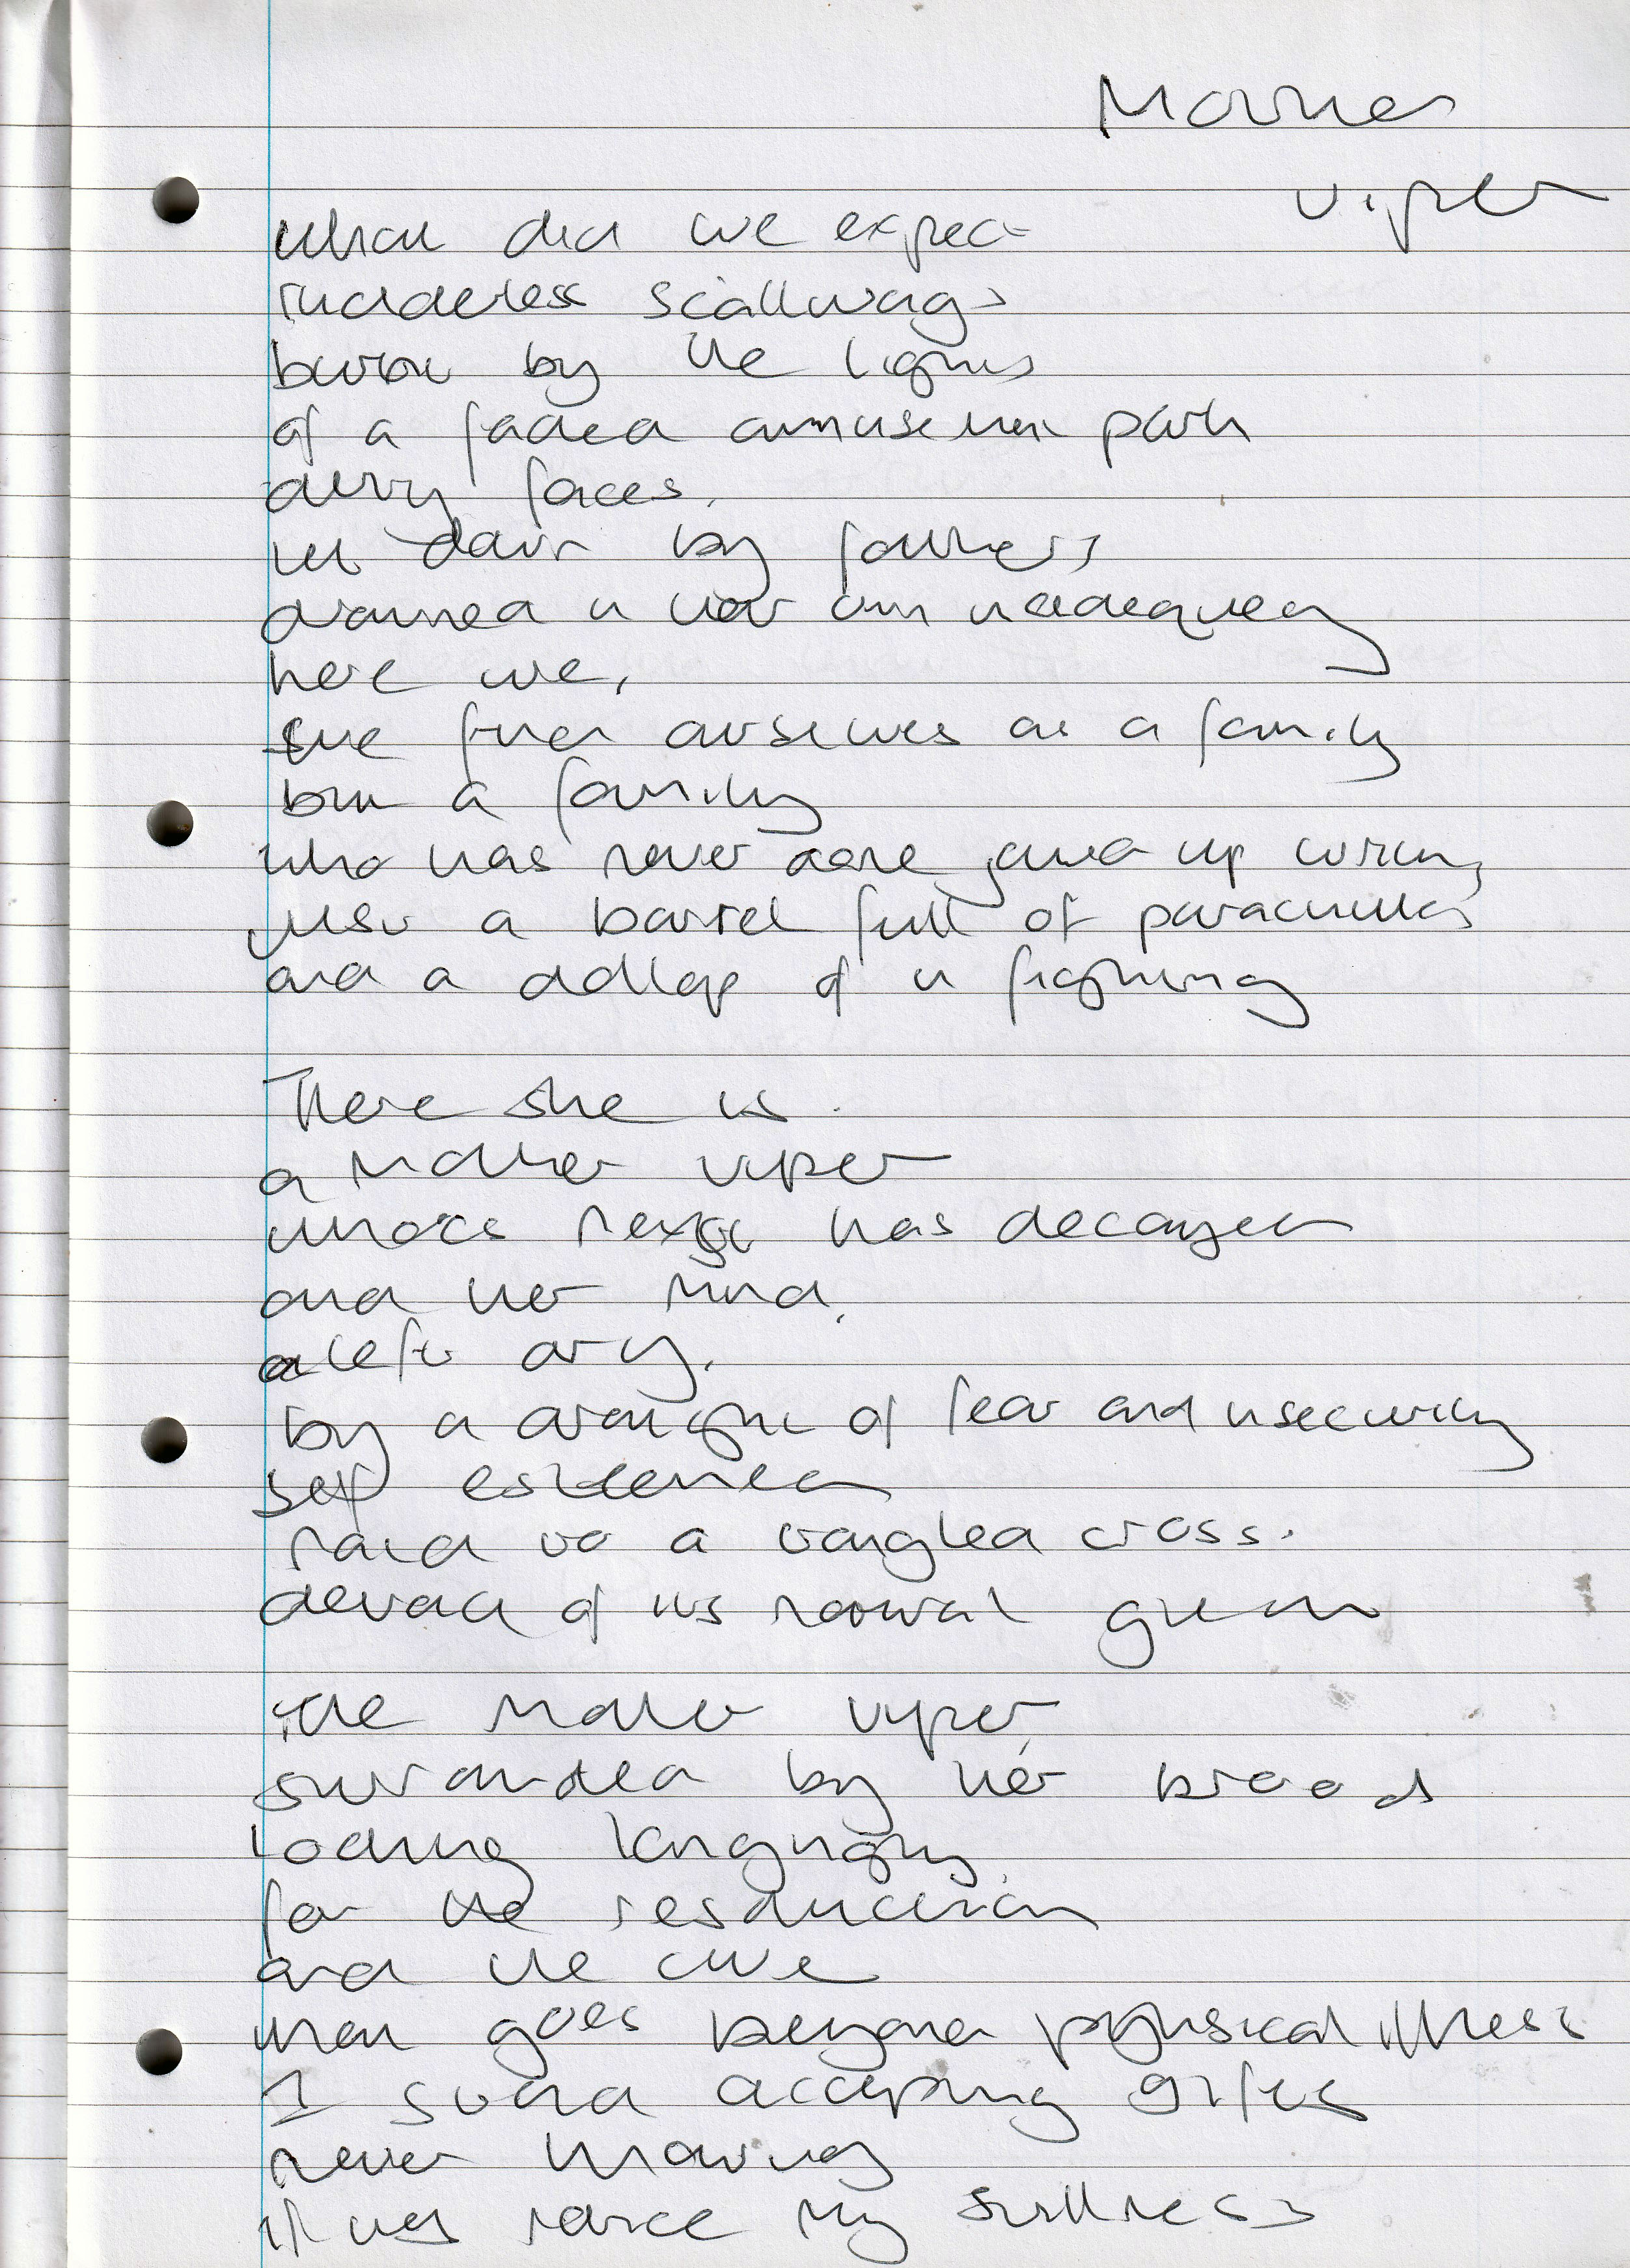 Mother
viper
what did we expect
rudderless scallwags
by the lights
of a faded amusement park
dirty faces,
let down by fathers
drowned in their own inadequecy
here we,
she finer ourselves as a family
but a family
who has never done give up
just a barrel full of parachutes
and a dollop of in fighting
There she is
a mother viper
whose has decayed
and her mind,
left dry,
by a drought of fear and insecurity
self esteemed
nailed to a tangled cross.
devoid of its normal
the mother viper,
surrounded by her brood
looking longingly,
for the
and the cure
that goes beyond physical illness
I stand accepting gifts
never knowing
if they notice my stillness